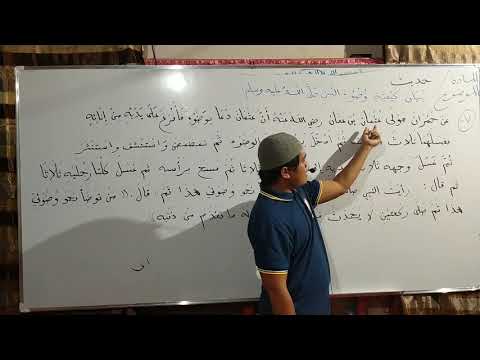 المادة / حديث
الموضوع / بيان كيفية وضوء النبي صلى الله عليه وسلم
٧- عن حمران مولى عثمان بن عفان رضي الله عنه أن عثمان دعا بوضوء فأفرغ على يديه من إنائه
فغسلهما ثلاث ثم أدخل الوضوء ثم تمضمض واستنشق واستنثر
ثم غسل وجهه ثلاثا ثم مسح برأسه ثم غسل كلتا رجليه ثلاثا
ثم قال : رأيت النبي نحو وضوئي هذا ثم قال (( من توضأ نحو وضوئي
هذا ثم صلى ركعتين لا يحدث له ما تقدم من ذنبه ))